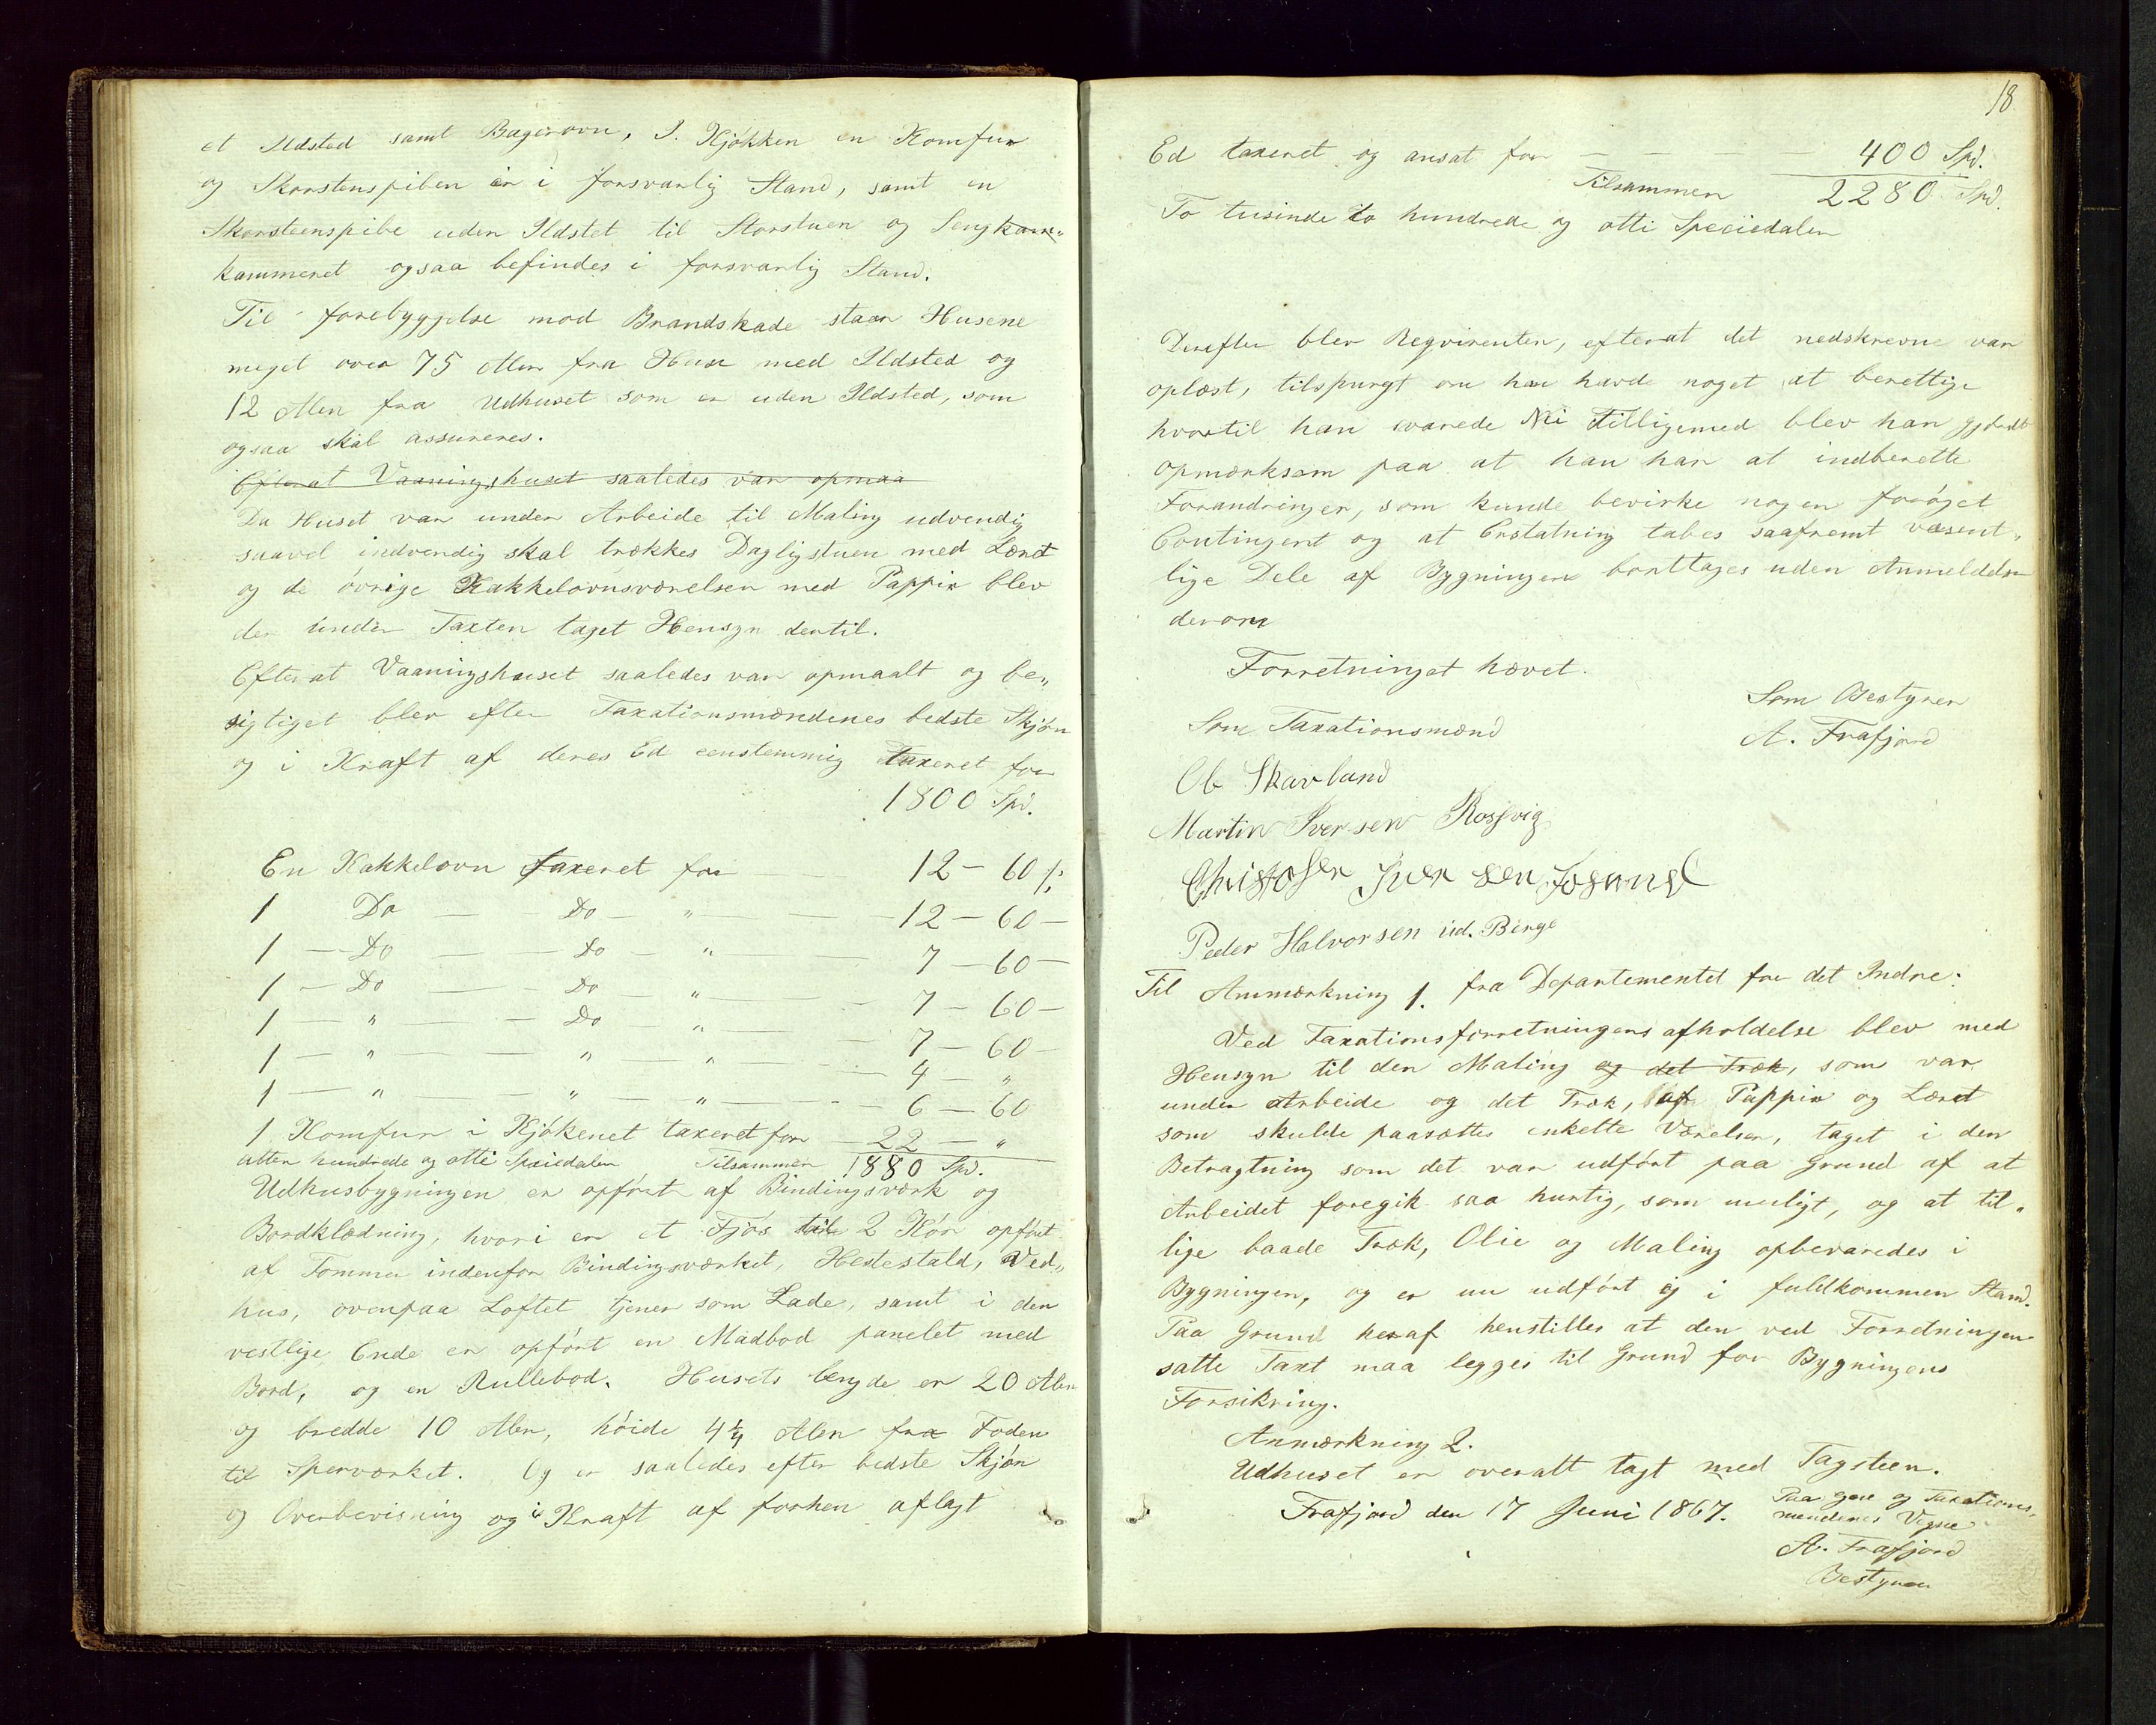 et Ildsted samt Bagerovn, I. Kjøkken en Komfur
og Skorstenspiben er i forsvarlig Stand, samt en
Skorsteenspibe uden Ildstet til Storstuen og Sengkam-
kammeret ogsaa befindes i forsvarlig Stand.
Til forebyggelse mod Brandskade staar Husene
meget over 75 Alen fra Huse med Ildsted og
12 Alen fra Udhuset som er uden Ildsted, som
ogsaa skal assureres.
Efterat Vaaningshuset saaledes var opmaa
Da Huset var under Arbeide til Maling udvendig
saavel indvendig skal trækkes Dagligstuen med Læret
og de øvrige Kakkelovnsværelser med Pappir blev
der under Taxten taget Hensyn dertil.
Efterat Vaaningshuset saaledes var opmaalt og be„
sigtiget blev efter Taxationsmændenes bedste Skjøn
og i Kraft af deres Ed eenstemmig taxeret for
1800 Spd.
En Kakkelovn taxeret for — 12 – 60 ſ:
1 Do — Do — „ — 12 – 60 –
1 — Do — Do — „ — 7 – 60 –
1 — Do — Do — „ — 7 – 60 –
1 — „ — Do — „ — 7 – 60 –
1 — „ — „ „ — 4 – „
1 — „ — „ — „ — 6 – 60
1 Komfur i Kjøkenet taxeret for — 22 – „
atten hundrede og otti Speciedaler Tilsammen 1880 Spd.
Udhusbygningen er opført af Bindingsværk og
Bordklædning, hvori er et Fjøs til 2 Kør opført
af Tømmer indenfor Bindingsværket, Hestestald, Ved„
hus, ovenpaa Loftet tjener som Lade, samt i den
vestlige Ende er opført en Madbod panelet med
Bord, og en Rullebod. Husets lengde er 20 Alen
og bredde 10 Alen, høide 4¼ Alen fra Foden
til Sperværket. Og er saaledes efter bedste Skjøn
og Overbevisning og i Kraft af forhen aflagt
18
Ed taxeret og ansat for — — — — 400 Spd.
Tilsammen 2280 Spd.
To tusinde to hundrede og otti Speciedaler
Derefter blev Reqvirenten, efterat det nedskrevne var
oplæst, tilspurgt om han havde noget at berettige
hvortil han svarede Nei tilligemed blev han gjordt
opmærksom paa at han har at indberette
Forandringer, som kunde bevirke nogen forøget
Contingent og at Erstatning tabes saafremt væsent„
lige Dele af Bygningen borttages uden Anmeldelse
derom
Forretninget hævet.
Som Bestyrer
Som Taxationsmænd
A. Frafjord
Ole Skavland
Martin Iversen Rossvig
Christofer Iversen Jøsang
Peder Halvorsen ud. Berge
Til Anmærkning 1. fra Departementet for det Indre:
Ved Taxationsforretningens afholdelse blev med
Hensyn til den Maling og det Træk, som var
under Arbeide og det Træk, af Pappir og Læret
som skulde paasættes enkelte Værelser, taget i den
Betragtning som det var udført paa Grund af at
Arbeidet foregik saa hurtig, som muligt, og at til„
lige baade Træk, Olie og Maling opbevaredes i
Bygningen, og er nu udført og i fuldkommen Stand.
Paa Grund heraf henstilles at den ved Forretningen
satte Taxt maa legges til Grund for Bygningens
Forsikring.
Anmærkning 2.
Udhuset er overalt tagt med Tagsteen.
Frafjord den 17 Juni 1867.
Paa egne og Taxations„
mændenes Vegne
A. Frafjord
Bestyrer